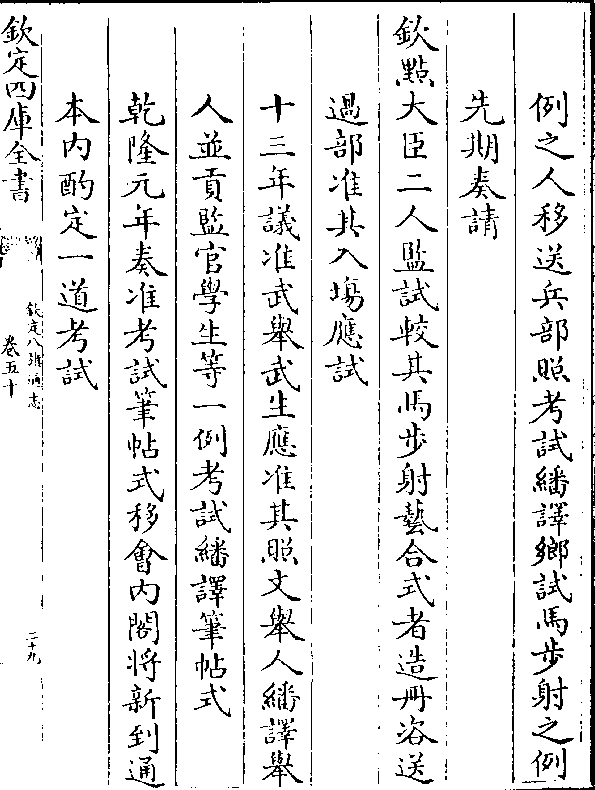 例之人移送兵部照考試繙譯鄉試馬步射之例
先期奏請
欽點大臣二人監試較其馬步射藝合式者造冊咨送
過部准其入場應試
十三年議准武舉武生應准其照文舉人繙譯舉
人並貢監官學生等一例考試繙譯筆帖式
乾隆元年奏准考試筆帖式移會內閣將新到通
本內酌定一道考試
欽定四庫全書
欽定八旗通志
卷五十
二十九